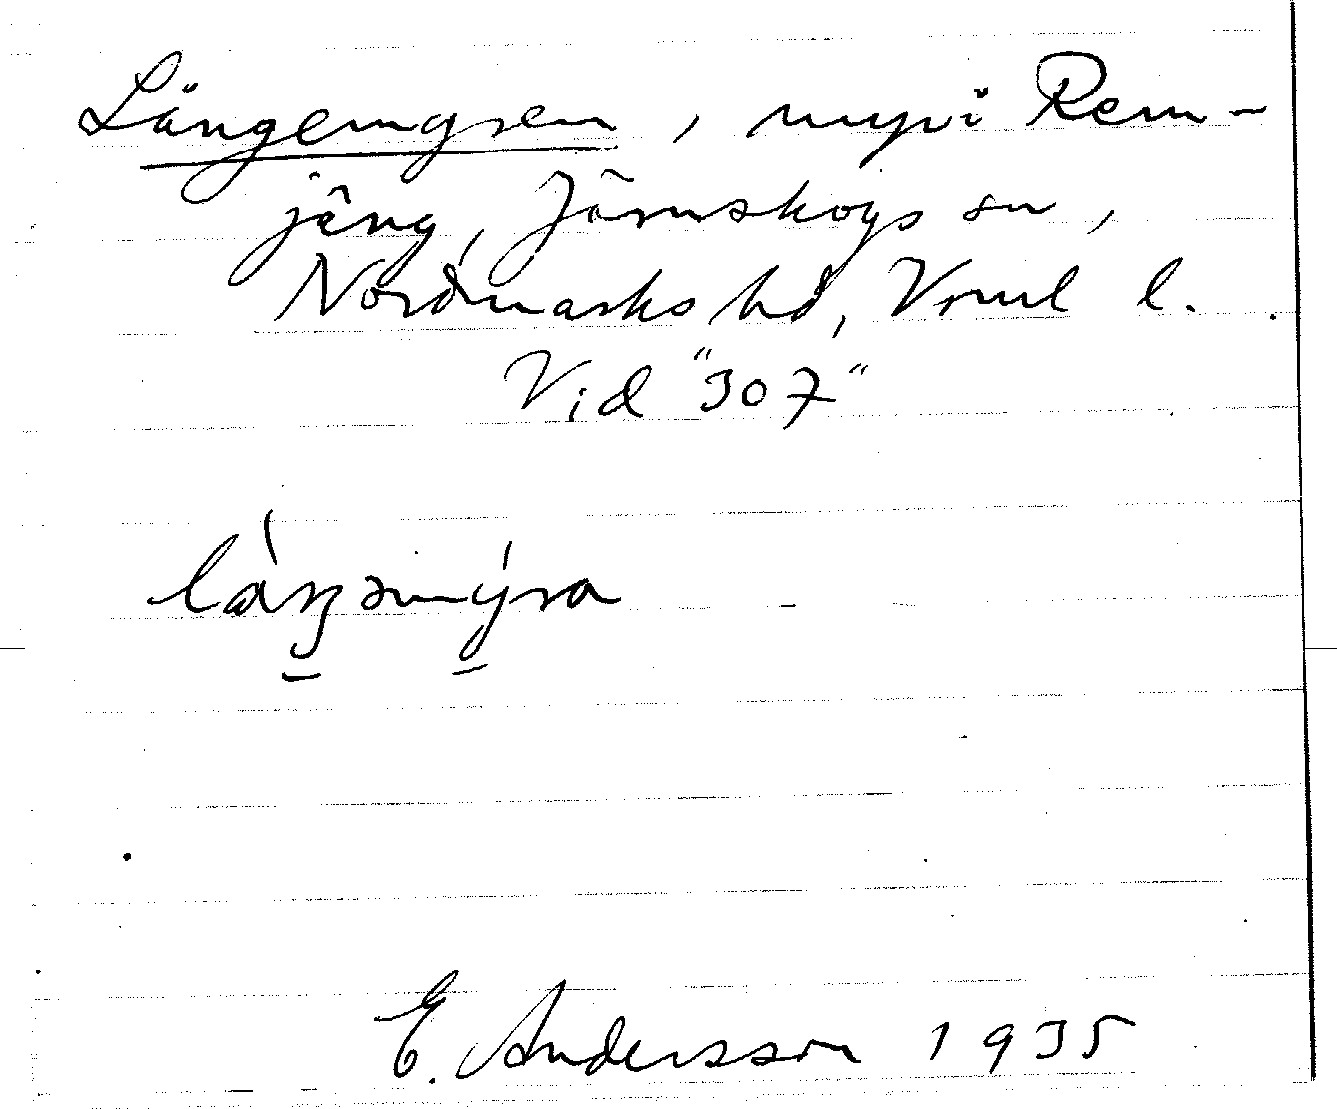 Långemyren, myr i Rem-
jäng, Järnskogs sn,
Nordmarks hd, Vrml l.
Vid "307"
låŋəmýra
E. Andersson 1935